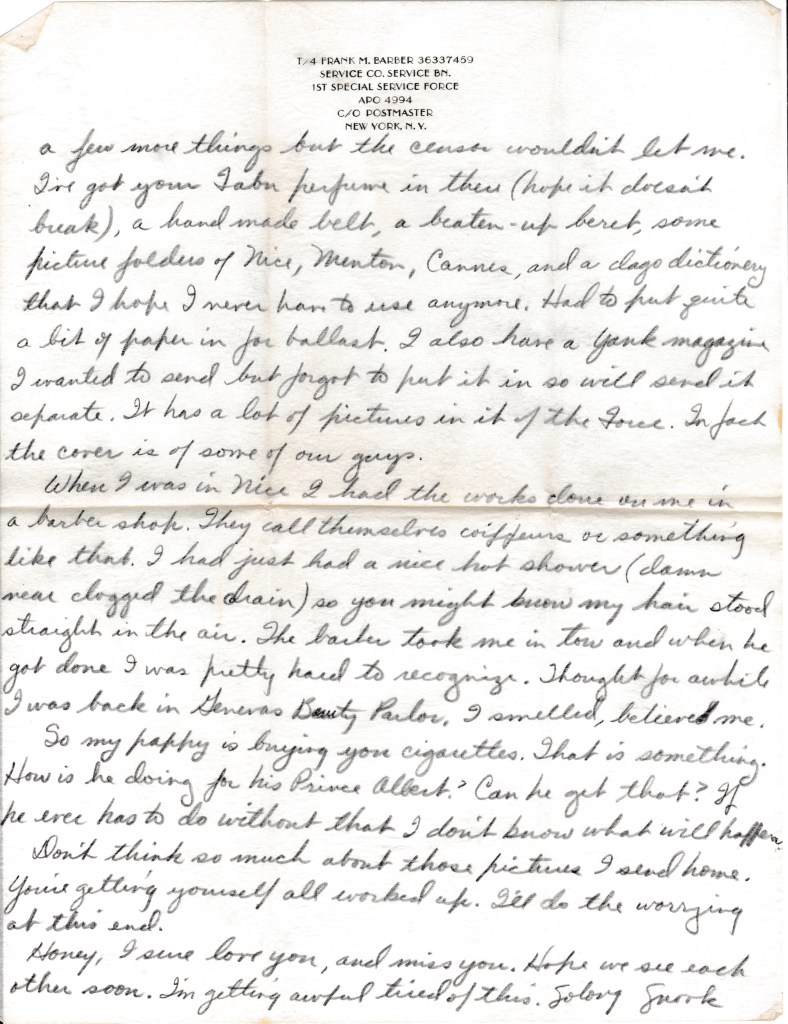 T/4 FRANK M. BARBER 36337459
SERVICE CO. SERVICE BN.
1ST SPECIAL SERVICE FORCE
APO 4994
C/O POSTMASTER
NEW YORK, N. Y.
a few more things but the censor wouldn't let me.
I've got your Tabu perfume in there (hope it doesn't
break), a hand made belt, a beaten-up beret, some
picture folders of Nice, Menton, Cannes, and a dago dictionery
that I hope I never have to use anymore. Had to put quite
a bit of paper in for ballast. I also have a Yank magazine
I wanted to send but forgot to put it in so will send it
separate. It has a lot of pictures in it of the Force. In fact
the cover is of some of our guys.
When I was in Nice I had the works done on me in
a barber shop. They call themselves coiffeurs or something
like that. I had just had a nice hot shower (damn
near clogged the drain) so you might know my hair stood
straight in the air. The barber took me in tow and when he
got done I was pretty hard to recognize. Thought for awhile
I was back in Genevas Beauty Parlor. I smelled, believe me.
So my pappy is buying you cigarettes. That is something.
How is he doing for his Prince Albert? Can he get that? If
he ever has to do without that I don't know what will happen.
Don't think so much about those pictures I send home.
You're getting yourself all worked up. I'll do the worrying
at this end.
Honey, I sure love you, and miss you. Hope we see each
other soon. I'm getting awful tired of this. Solong Snook